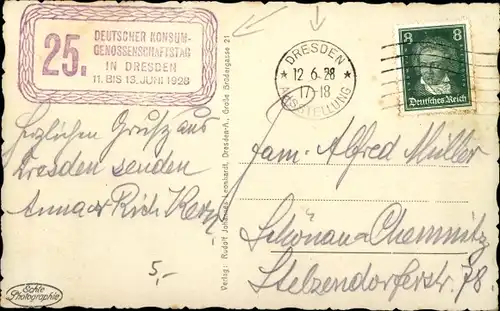 25. DEUTSCHER KONSUM-
GENOSSENSCHAFTSTAG
IN DRESDEN
11. BIS 13. JUNI 1928
DRESDEN
12.6.28
17-18
AUSSTELLUNG
8 8
Deutsches Reich
Herzlichen Gruß aus
Dresden senden
Anna u. Rich.
5,-
Echte
Photographie
Verlag: Rudolf Leonhardt, Dresden-A., Große Brüdergasse 21
Fam. Alfred Müller
Schönau-Chemnitz
Stelzendorferstr. 78.